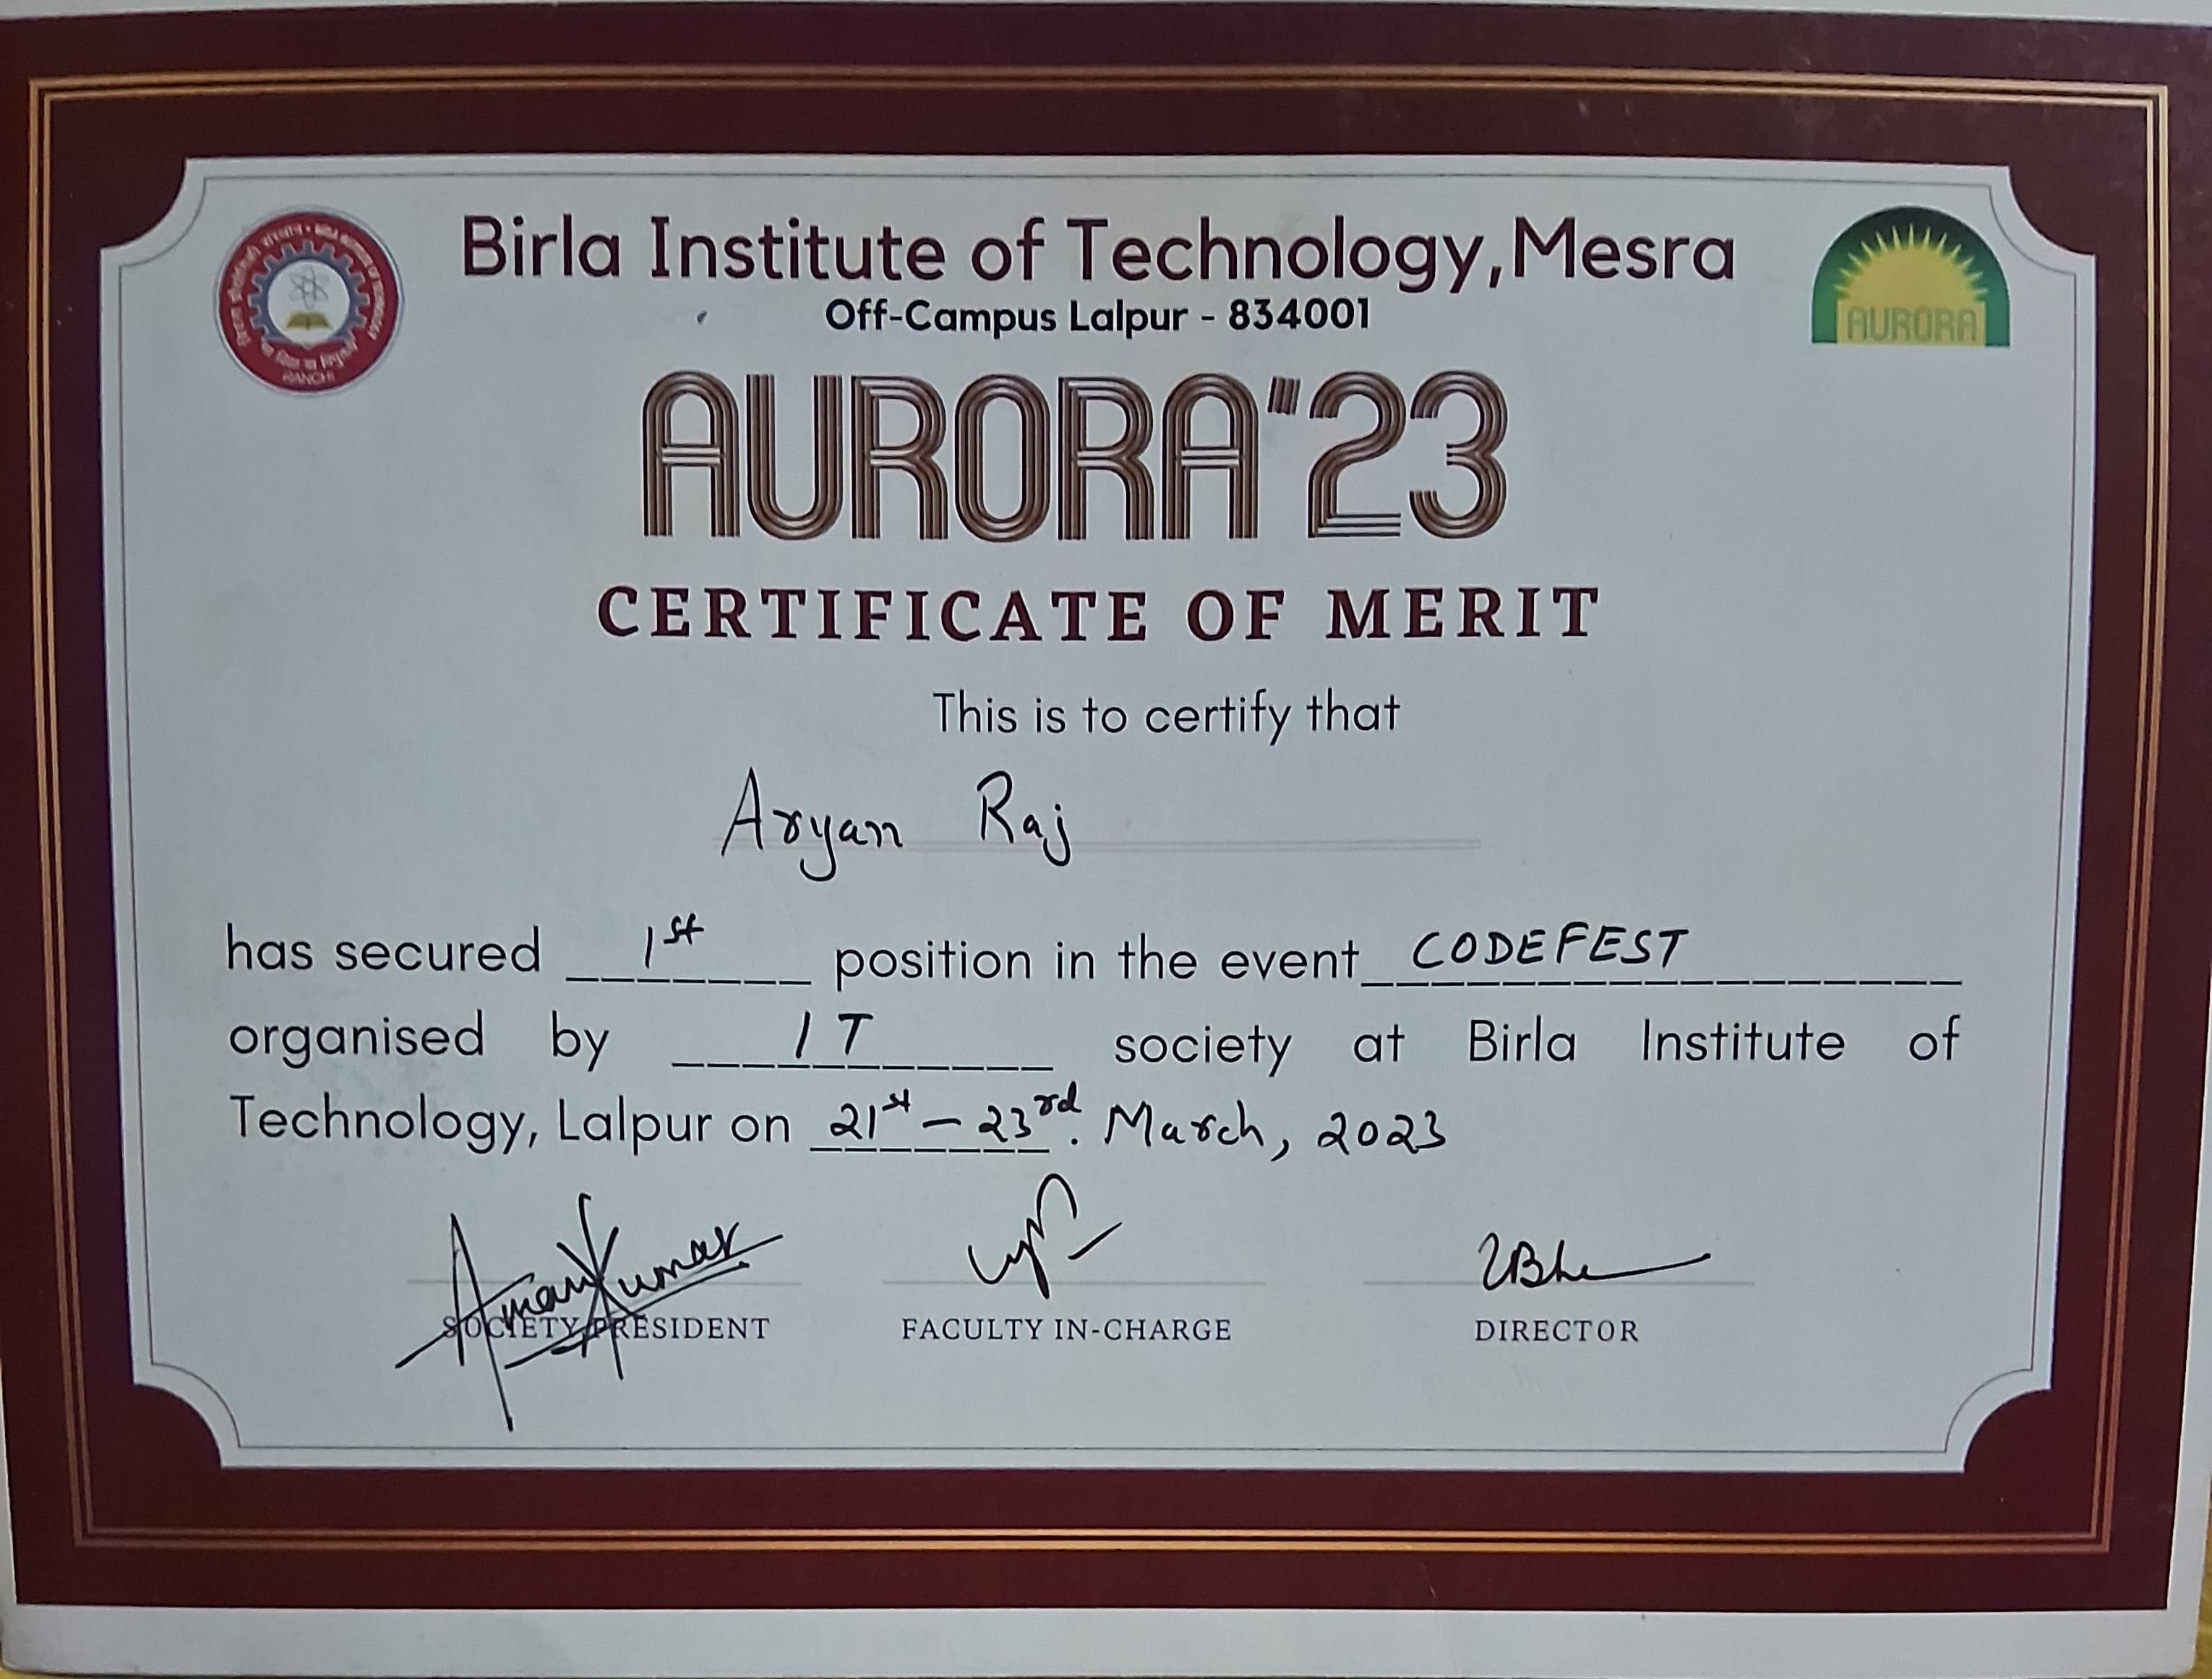 Birla Institute of Technology,Mesra
Off-Campus Lalpur - 834001
AURORA
RANCHI
AURORA'23
CERTIFICATE OF MERIT
This is to certify that
Aryan Raj
has secured 1st position in the event CODEFEST
organised by IT society at Birla Institute of
Technology, Lalpur on 21st - 23rd. March, 2023
Aman Kumar
SOCIETY PRESIDENT FACULTY IN-CHARGE DIRECTOR